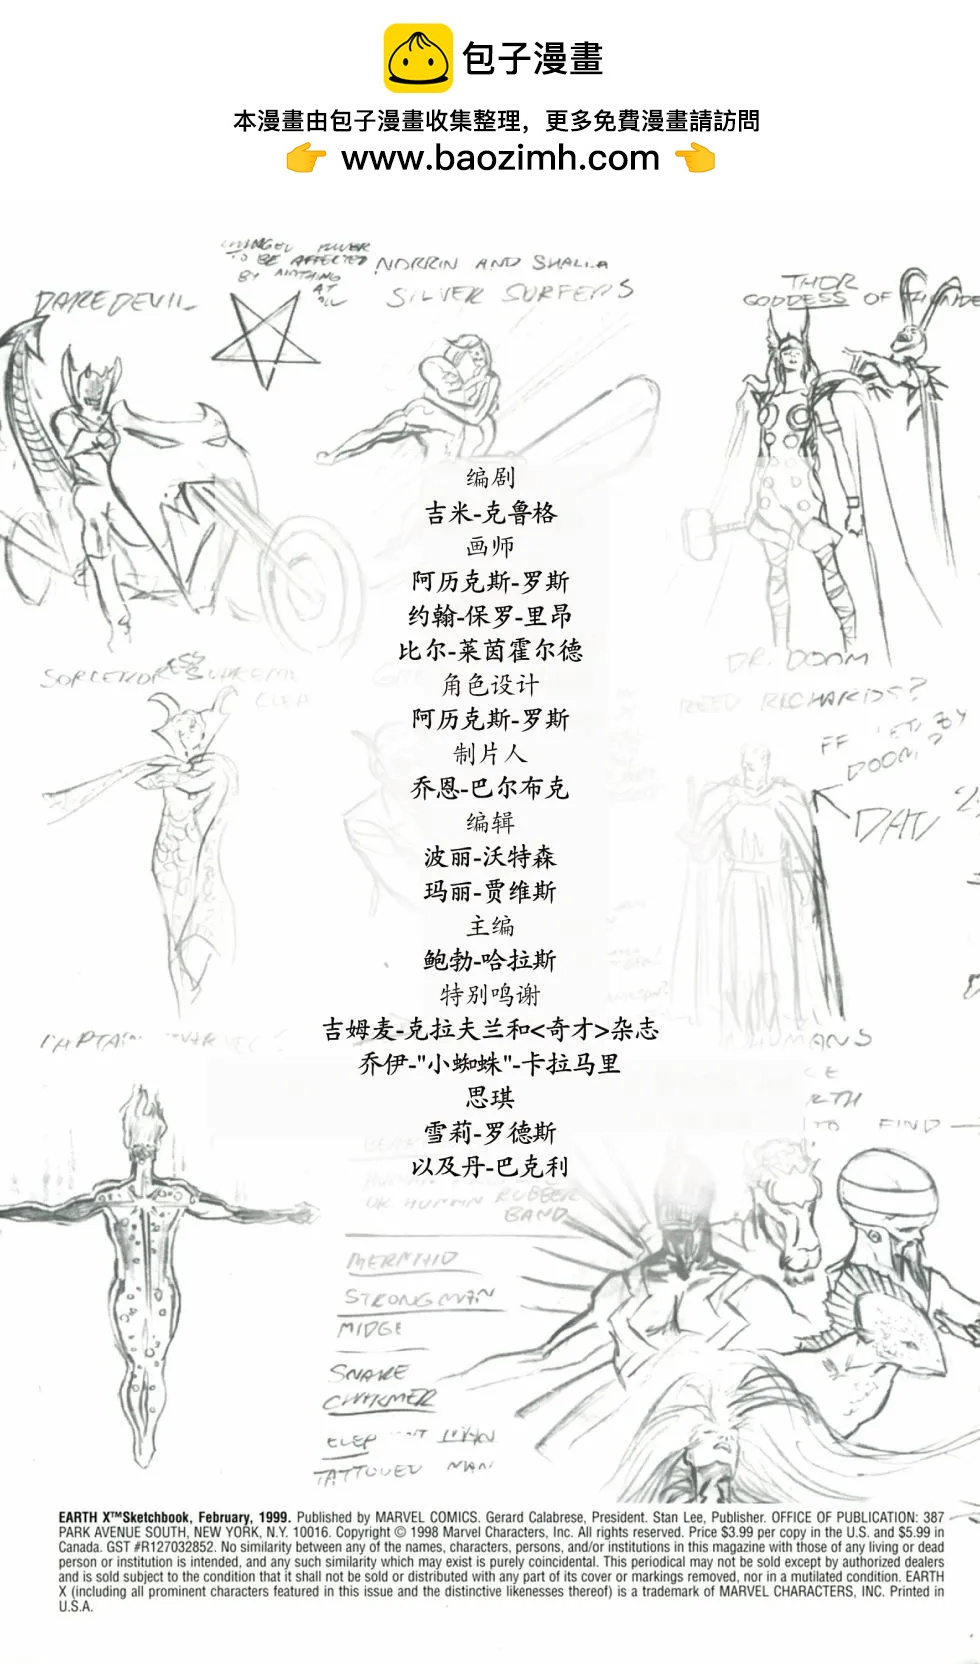 包子漫畫
本漫畫由包子漫畫收集整理，更多免費漫畫請訪問
www.baozimh.com
TO BE AFFECTED
BY
AT
NORRIN AND SHALLA
SILVER SURFERS
DAREDEVIL
THOR
GODDESS OF
编剧
吉米-克鲁格
画师
阿历克斯-罗斯
约翰-保罗-里昂
比尔-莱茵霍尔德
角色设计
阿历克斯-罗斯
制片人
乔恩-巴尔布克
编辑
波丽-沃特森
玛丽-贾维斯
主编
鲍勃-哈拉斯
特别鸣谢
吉姆麦-克拉夫兰和<奇才>杂志
乔伊-"小蜘蛛"-卡拉马里
思琪
雪莉-罗德斯
以及丹-巴克利
DR. DOOM
REED RICHARDS?
FF
BY
DOOM?
CLEA
TO FIND
OR HUMAN RUBBER
BAND
MERMAID
STRONGMAN
MIDGE
SNAKE
CHARMER
TATTOOED MAN
EARTH X™Sketchbook, February, 1999. Published by MARVEL COMICS. Gerard Calabrese, President. Stan Lee, Publisher. OFFICE OF PUBLICATION: 387
PARK AVENUE SOUTH, NEW YORK, N.Y. 10016. Copyright © 1998 Marvel Characters, Inc. All rights reserved. Price $3.99 per copy in the U.S. and $5.99 in
Canada. GST #R127032852. No similarity between any of the names, characters, persons, and/or institutions in this magazine with those of any living or dead
person or institution is intended, and any such similarity which may exist is purely coincidental. This periodical may not be sold except by authorized dealers
and is sold subject to the condition that it shall not be sold or distributed with any part of its cover or markings removed, nor in a mutilated condition. EARTH
X (including all prominent characters featured in this issue and the distinctive likenesses thereof) is a trademark of MARVEL CHARACTERS, INC. Printed in
U.S.A.